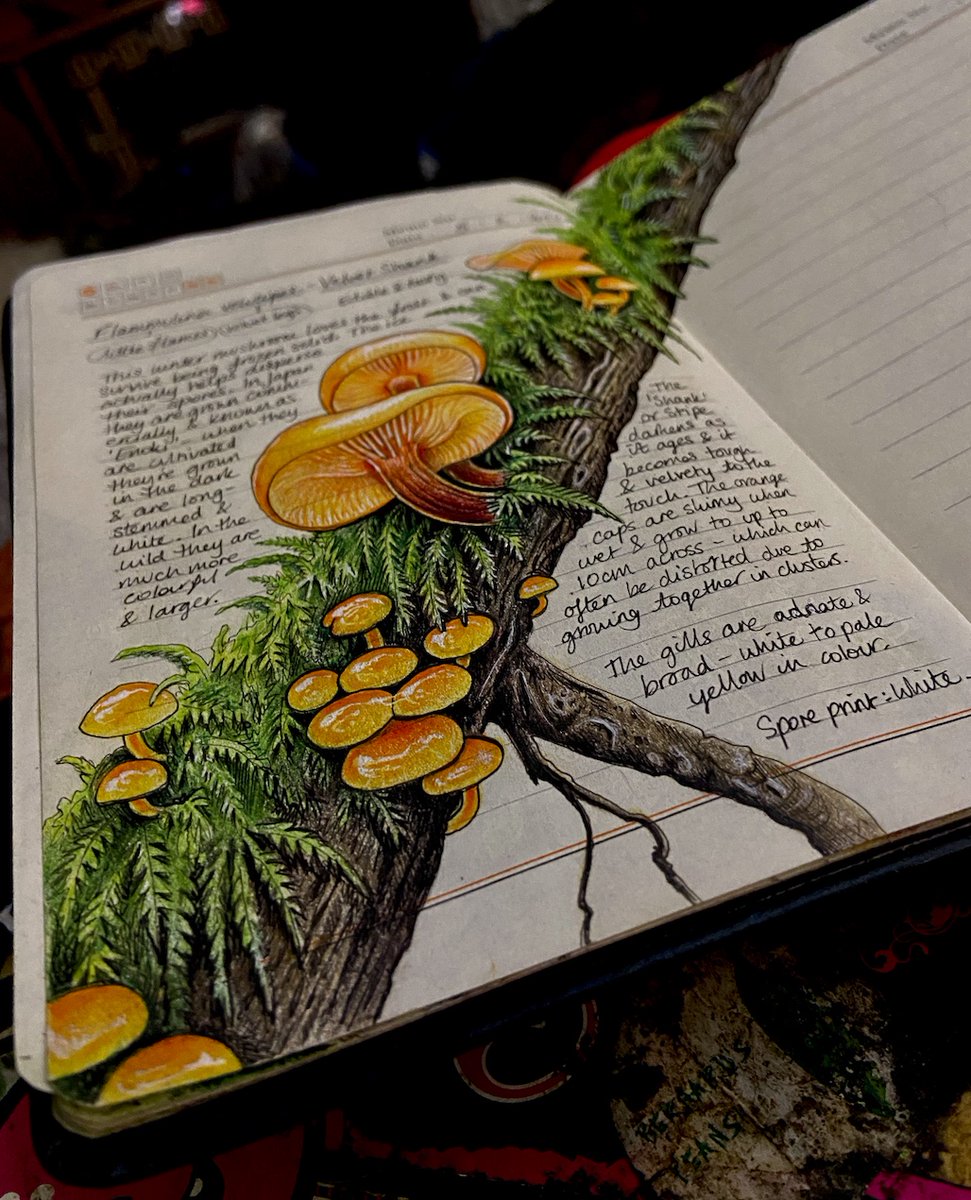 Flammulina velutipes - Velvet Shank
(little flames) (velvet legs) Edible & tasty
This winter mushroom loves the frost & can
survive being frozen solid. The ice
actually helps disperse
their spores. In Japan
they are grown comm-
ercially & known as
'Enoki' - when they
are cultivated
they're grown
in the dark
& are long-
stemmed &
white. In the
wild they are
much more
colourful
& larger.
The
'Shank'
or stipe
darkens as
it ages & it
becomes tough
& velvety to the
touch. The orange
caps are shiny when
wet & grow to up to
10cm across - which can
often be distorted due to
growing together in clusters.
The gills are adnate &
broad - white to pale
yellow in colour.
Spore print: White.